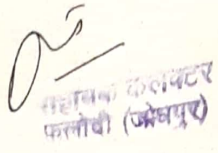 सहायक कलक्टर
फलोदी (जोधपुर)